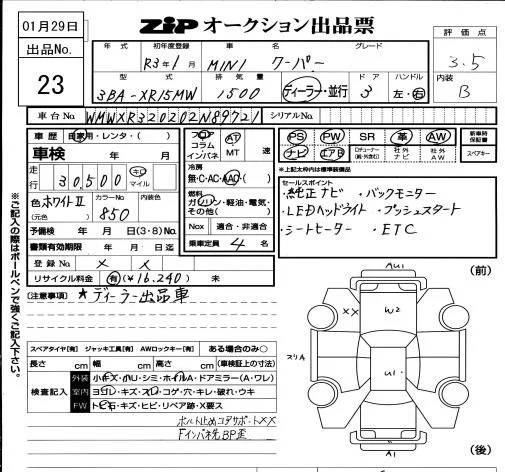 01月29日
ZIP オークション出品票
出品No.
23
評価点
3.5
内装
B
年式 初年度登録 車名 グレード
R3年1月 MINI クーパー
型式 排気量 ドア ハンドル
3BA-XR15MW 1500 ディーラー・並行 3 左・右
車台No. WMWXR320202N89721 シリアルNo.
車歴 自家用・レンタ( )
車検 年 月
走行 30,500 キロ マイル
色 ホワイトII (元色) カラーNo. 850 内装色
予備検 年 月 日(3・8)No.
書類有効期限 年 月 日迄
登録No. × ×
リサイクル料金 有(¥16,240) 未
フロア コラム インパネ AT MT 速
冷房 無・C・AC・AAC
燃料 ガソリン・軽油・電気・その他( )
Nox 適合・非適合
乗車定員 4 名
PS PW SR 革 AW 新車時保証書
ナビ エアB 社外ナビ 社外AW スペアキー
*上記太枠内は標準装備品
セールスポイント
・純正ナビ ・バックモニター
・LEDヘッドライト ・プッシュスタート
・シートヒーター ・ETC
[注意事項] ★ディーラー出品車
※ご記入の際はボールペンで強くご記入下さい。
スペアタイヤ[有] ジャッキ工具[有] AWロックキー[有] ある場合のみ○
長さ cm 幅 cm 高さ cm (車検証上の寸法)
検査記入
外装 小キズ・小U・シミ・ホイルA・ドアミラー(A・ワレ)
室内 ヨゴレ・キズ・スレ・コゲ・穴・キレ・破れ・ウキ
FW トビ石・キズ・ヒビ・リペア跡・X要ス
ボルト止めコアサポートXX
Fインパネ先BP歪
(前)
AU1
XX
W2
スリA
U1
A1
(後)